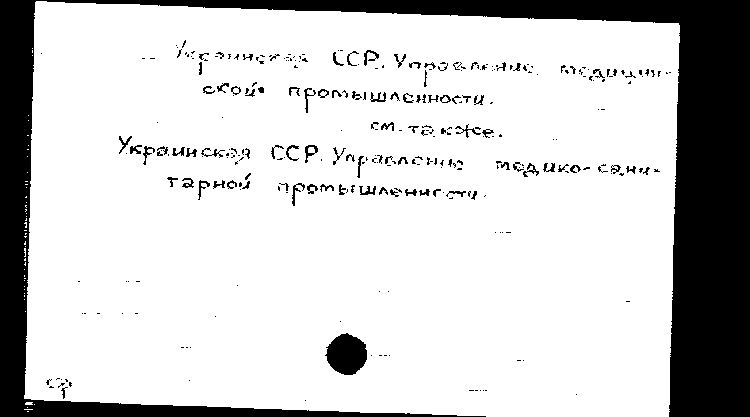 Украинская ССР. Управление медицин-
ской промышленности.
см. также.
Украинская ССР. Управление медико-сани-
тарной промышленности.